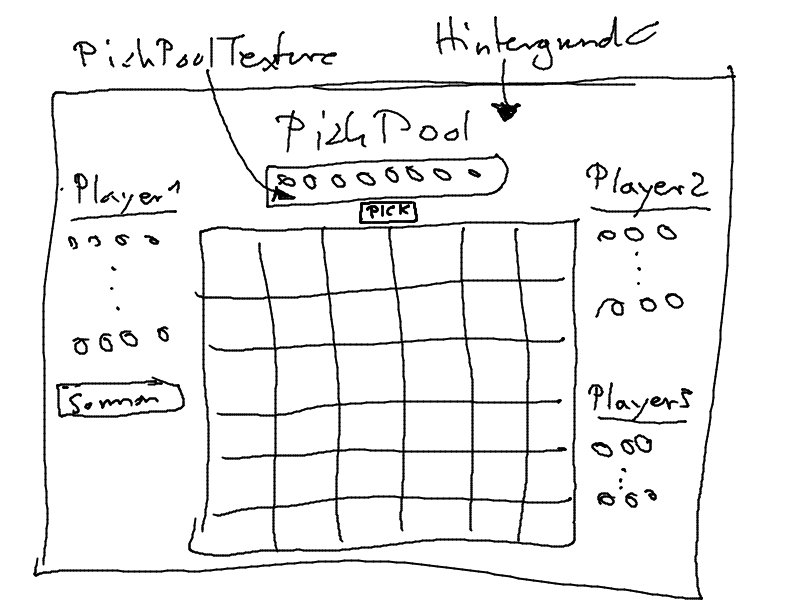 PickPoolTexture
Hintergrund
PickPool
Player1
Player2
PICK
Summon
Player3